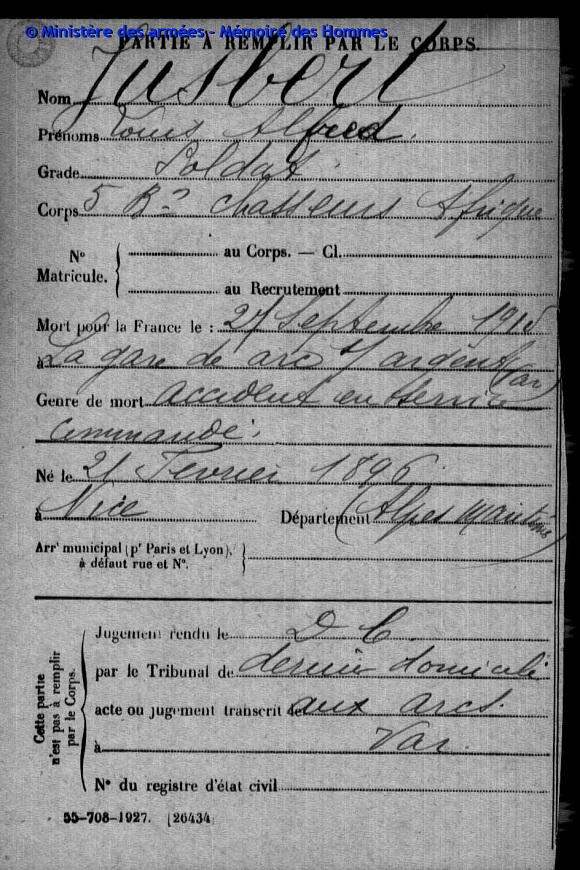 © Ministère des armées - Mémoire des Hommes
PARTIE À REMPLIR PAR LE CORPS.
Nom Jusbert
Prénoms Louis Alfred.
Grade Soldat.
Corps 5 Rt chasseurs Afrique
N° Matricule. au Corps. — Cl.
au Recrutement
Mort pour la France le : 27 Septembre 1915
à La gare de arcs s/ argens (Var)
Genre de mort accident en service
commandé.
Né le 21 Fevrier 1896
à Nice Département (Alpes Maritimes)
Arrt municipal (pr Paris et Lyon),
à défaut rue et N°.
Cette partie n'est pas à remplir par le Corps.
Jugement rendu le D C.
par le Tribunal de dernier domicile
acte ou jugement transcrit le aux arcs.
à Var.
N° du registre d'état civil
55-708-1927. [26434